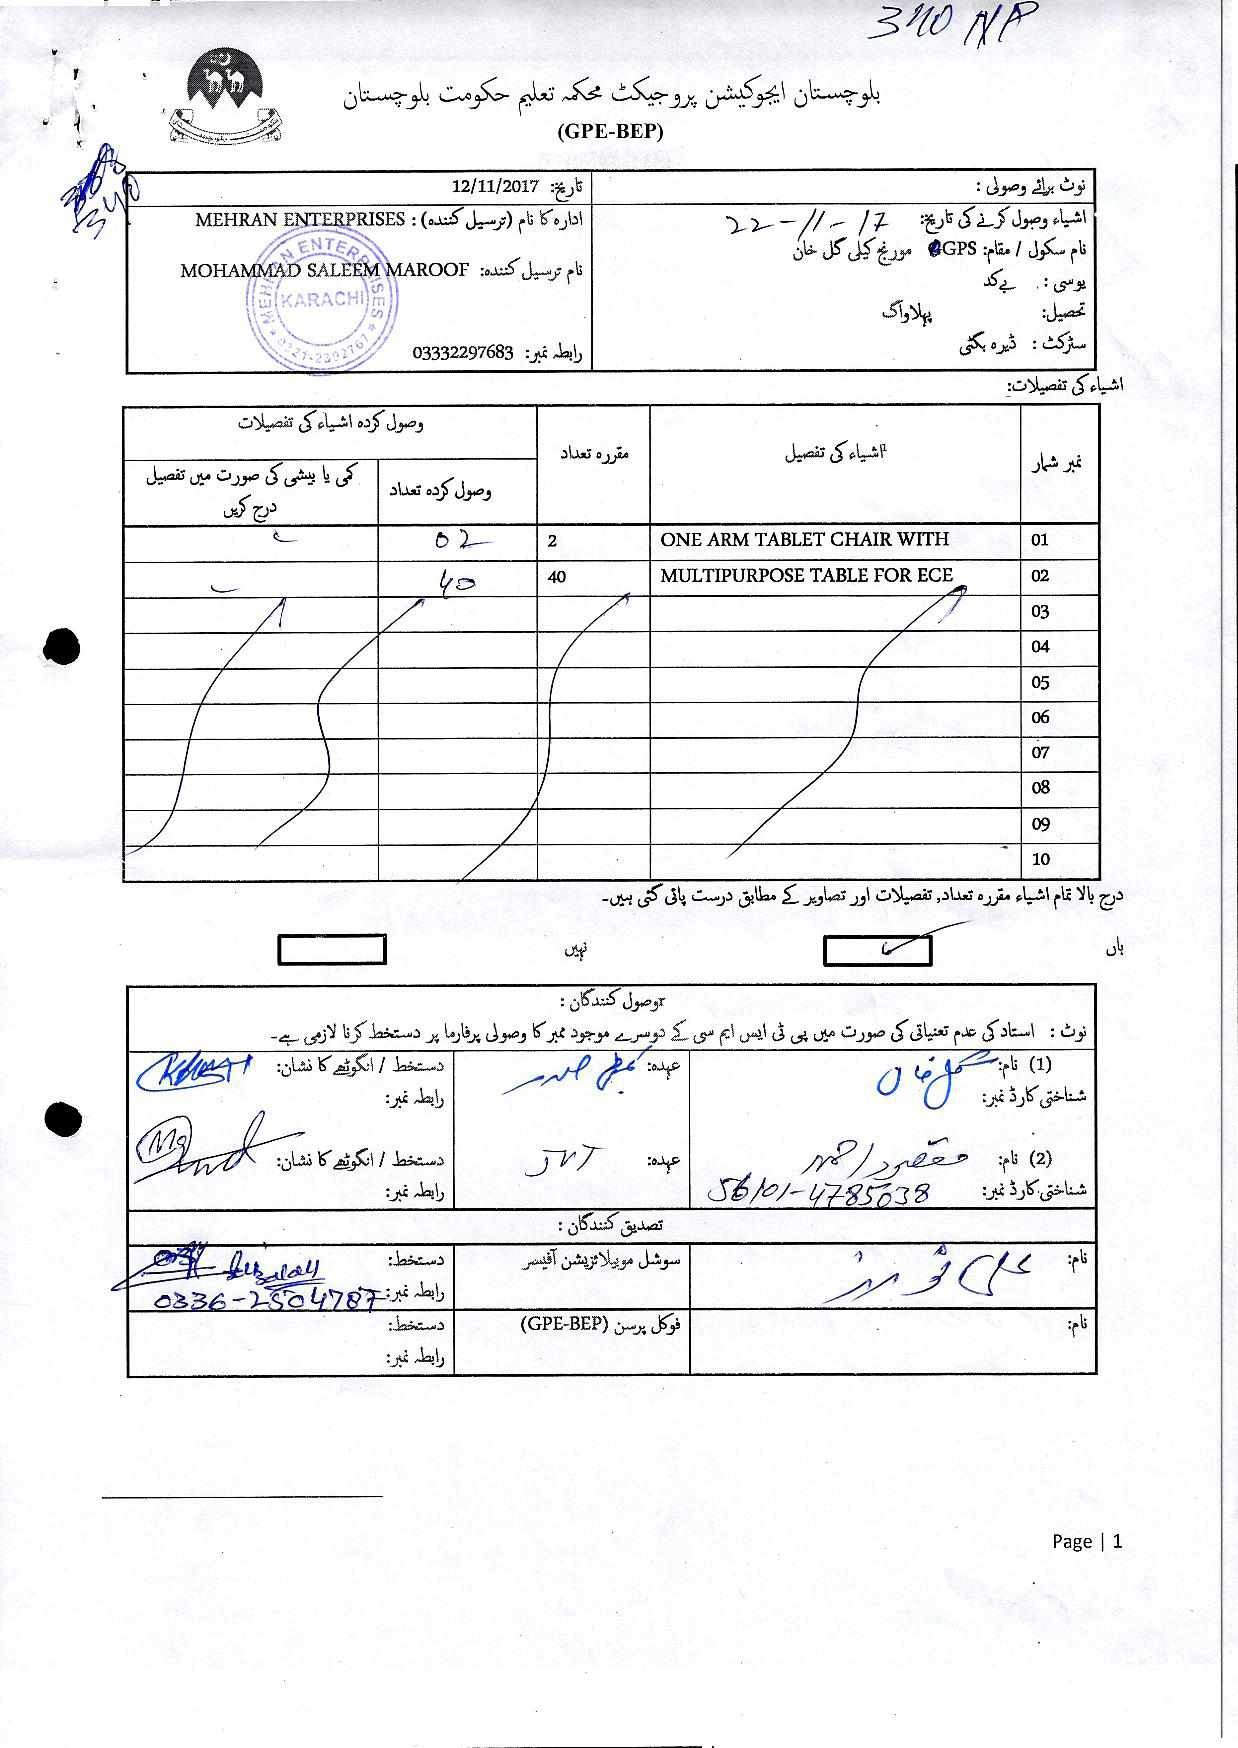 340 NP
بلوچستان ایجوکیشن پروجیکٹ محکمہ تعلیم حکومت بلوچستان
(GPE-BEP)
340
نوٹ برائے وصولی :
تاریخ: 12/11/2017
اشیاء وصول کرنے کی تاریخ: 22-11-17
ادارہ کا نام (ترسیل کنندہ) : MEHRAN ENTERPRISES
نام سکول / مقام: GPS مورنج کیلی گل خان
نام ترسیل کنندہ: MOHAMMAD SALEEM MAROOF
یوسی : بےکد
تحصیل: پھلاواگ
سٹرکٹ : ڈیرہ بگٹی
رابطہ نمبر: 03332297683
MEHRAN ENTERPRISES
KARACHI
0321-2392767
اشیاء کی تفصیلات:
نمبر شمار
اشیاء کی تفصیل
مقررہ تعداد
وصول کردہ اشیاء کی تفصیلات
وصول کردہ تعداد
کمی یا بیشی کی صورت میں تفصیل درج کریں
01 ONE ARM TABLET CHAIR WITH 2 02
02 MULTIPURPOSE TABLE FOR ECE 40 40
03
04
05
06
07
08
09
10
درج بالا تمام اشیاء مقررہ تعداد, تفصیلات اور تصاویر کے مطابق درست پائی گئی ہیں۔
ہاں
نہیں
وصول کنندگان :
نوٹ : استاد کی عدم تعیناتی کی صورت میں پی ٹی ایس ایم سی کے دوسرے موجود ممبر کا وصولی پرفارما پر دستخط کرنا لازمی ہے۔
(1) نام: گل خان
عہدہ:
دستخط / انگوٹھے کا نشان:
شناختی کارڈ نمبر:
رابطہ نمبر:
(2) نام: مقصود احمد
عہدہ: JVT
دستخط / انگوٹھے کا نشان:
شناختی کارڈ نمبر: 56101-4785038
رابطہ نمبر:
تصدیق کنندگان :
نام:
سوشل موبیلائزیشن آفیسر
دستخط:
رابطہ نمبر: 0336-2504787
نام:
فوکل پرسن (GPE-BEP)
دستخط:
رابطہ نمبر:
Page | 1